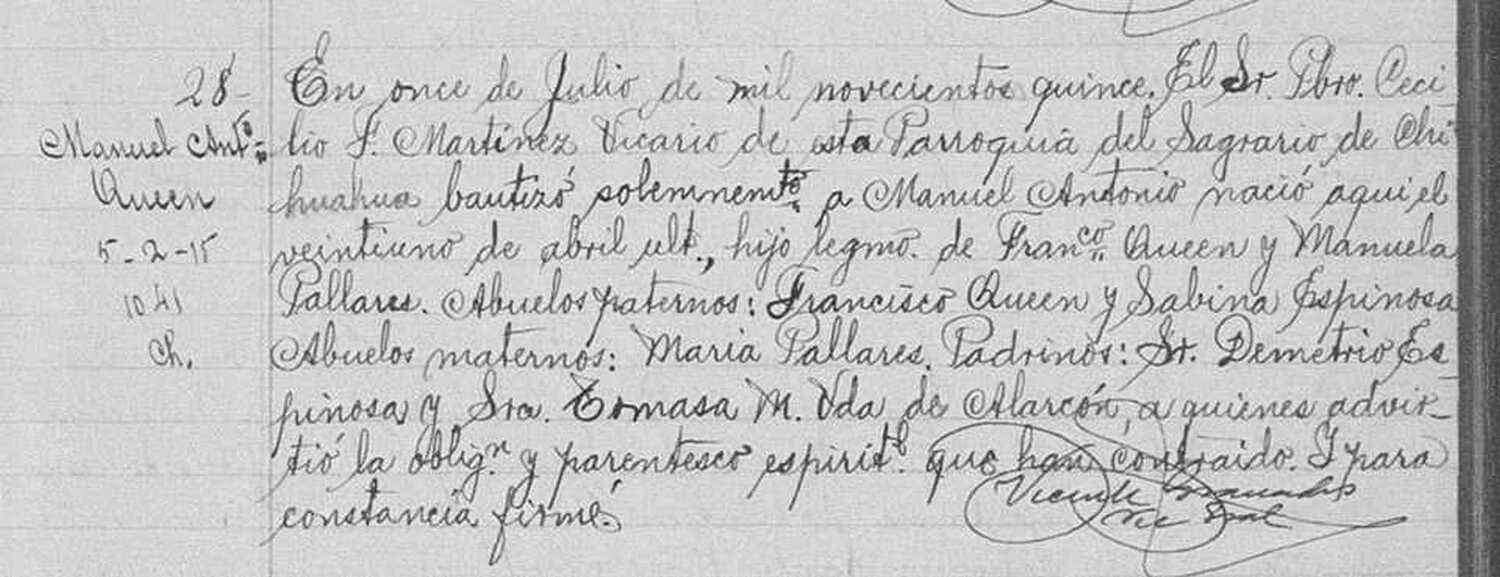 28-
Manuel Antº
Queen
5-2-15
1041
Ch.
En once de Julio de mil novecientos quince. El Sr. Pbro. Ceci-
lio F. Martínez Vicario de esta Parroquia del Sagrario de Chi-
huahua bautizó solemnemte. a Manuel Antonio nació aqui el
veintiuno de abril ult., hijo legmo. de Franco. Queen y Manuela
Pallares. Abuelos paternos: Francisco Queen y Sabina Espinosa
Abuelos maternos: Maria Pallares. Padrinos: Sr. Demetrio Es-
pinosa y Sra. Tomasa M. Vda de Alarcón, a quienes advir-
tió la oblign. y parentesco espiritl. que han contraido. Y para
constancia firmé.
Vicente Granados